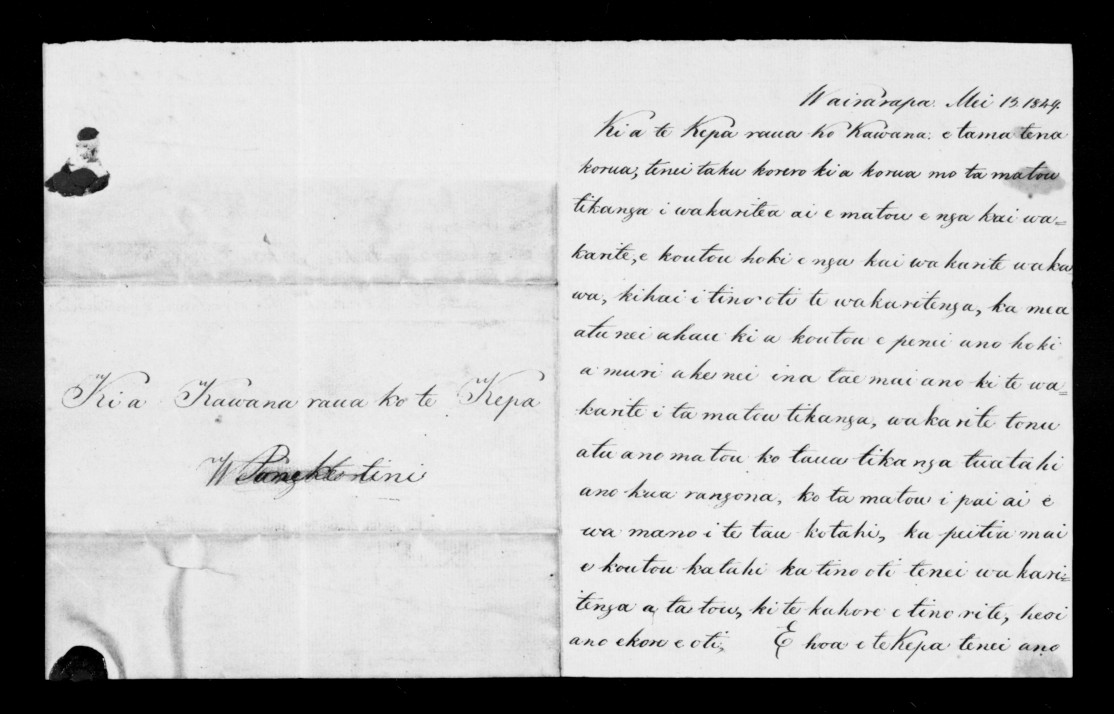 Ki a Kawana raua ko te Kepa
Wairarapa. Mei 19. 1849.
Ki a te Kepa raua ko Kawana. e tama tena
korua, tenei taku korero ki a korua mo ta matou
tikanga i wakaritea ai e matou e nga kai wa=
karite, e koutou hoki e nga kai wakarite waka
wa, kihai i tino oti te wakaritenga, ka mea
atu nei ahau ki a koutou e penei ano hoki
a muri ake nei ina tae mai ano ki te wa=
karite i ta matou tikanga, wakarite tonu
atu ano matou ko taua tikanga tuatahi
ano kua rangona, ko ta matou i pai ai e
wa mano i te tau kotahi, ka peitia mai
e koutou katahi ka tino oti tenei wakari=
tenga a ta tou, ki te kahore e tino rite, heoi
ano ekore e oti, E hoa e te Kepa tenei ano